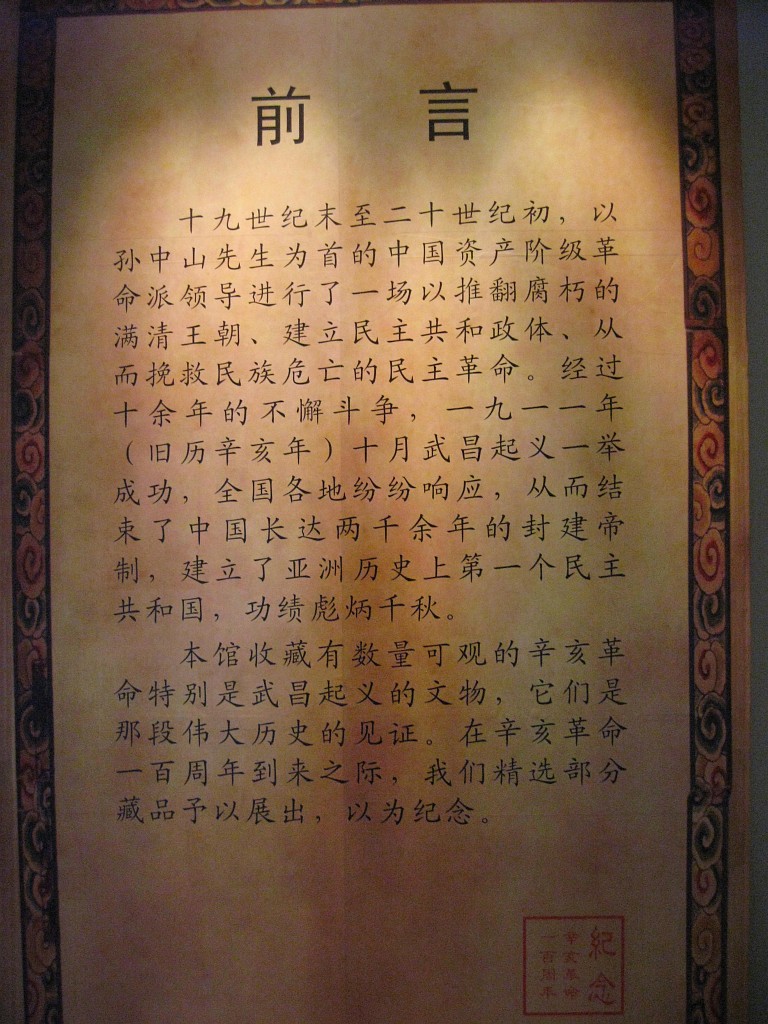 前言
十九世纪末至二十世纪初，以
孙中山先生为首的中国资产阶级革
命派领导进行了一场以推翻腐朽的
满清王朝、建立民主共和政体、从
而挽救民族危亡的民主革命。经过
十余年的不懈斗争，一九一一年
（旧历辛亥年）十月武昌起义一举
成功，全国各地纷纷响应，从而结
束了中国长达两千余年的封建帝
制，建立了亚洲历史上第一个民主
共和国，功绩彪炳千秋。
本馆收藏有数量可观的辛亥革
命特别是武昌起义的文物，它们是
那段伟大历史的见证。在辛亥革命
一百周年到来之际，我们精选部分
藏品予以展出，以为纪念。
紀念
辛亥革命
一百周年